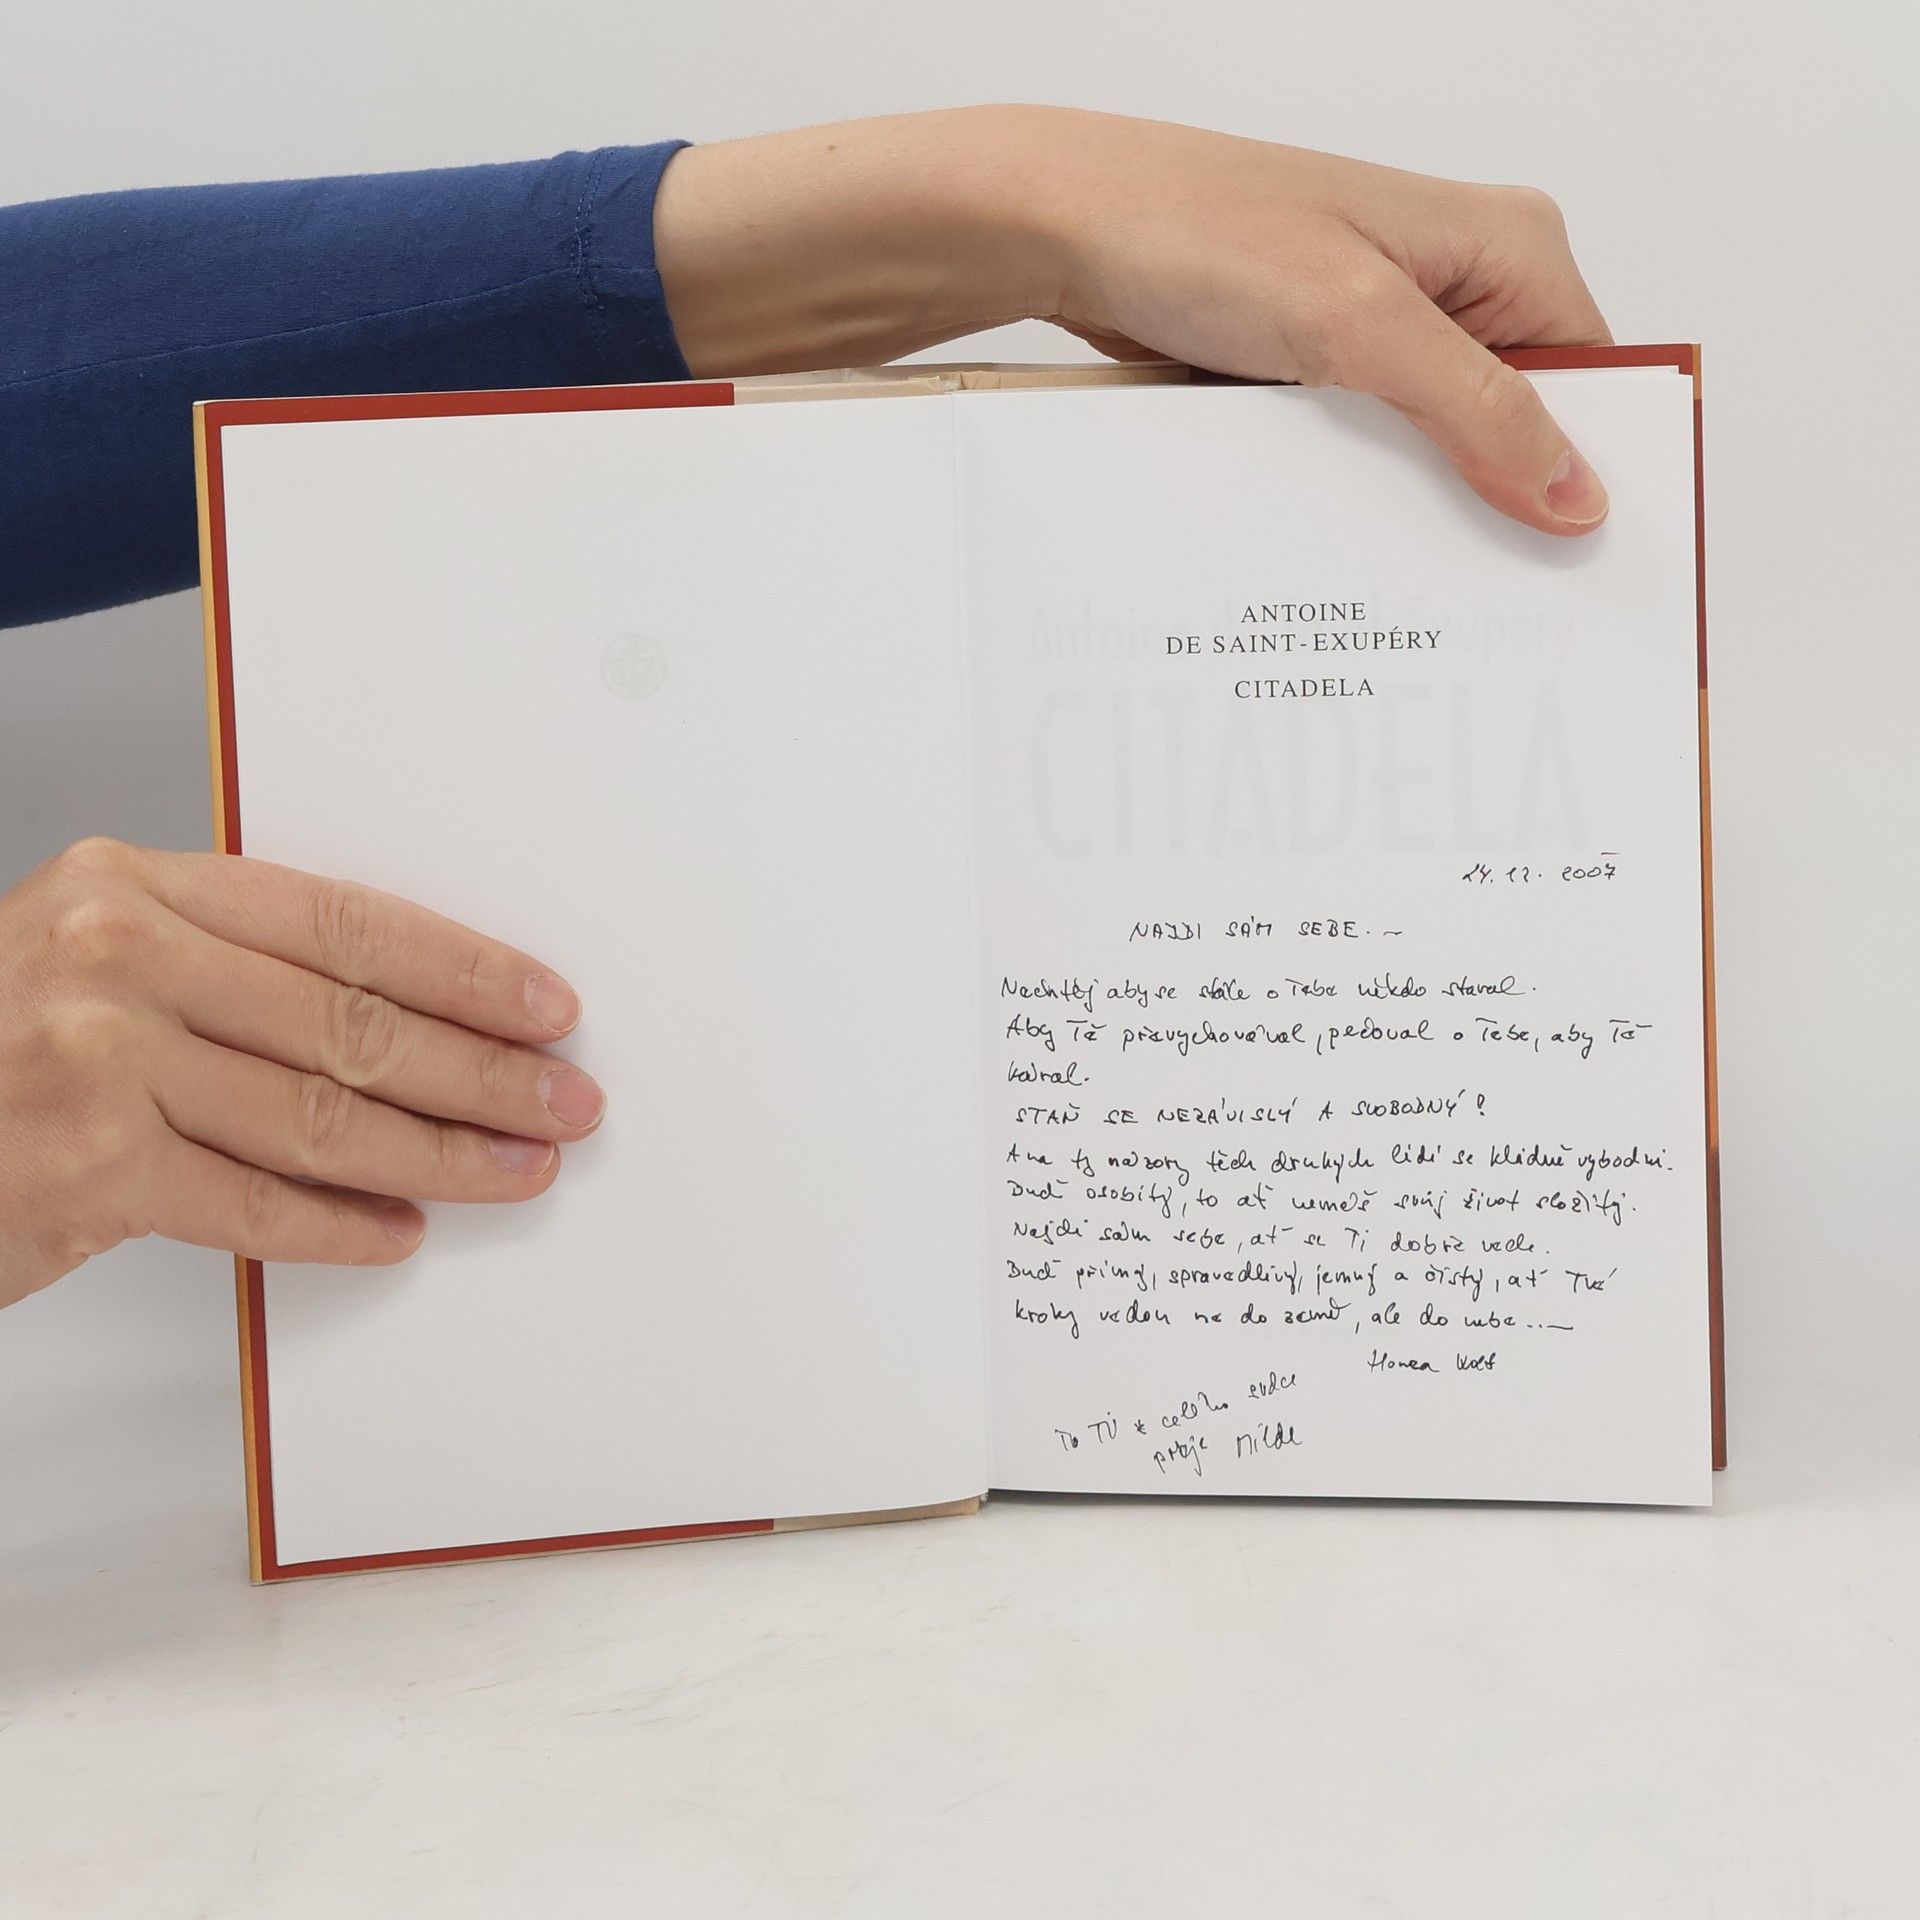 ANTOINE
DE SAINT-EXUPÉRY
CITADELA
24. 12. 2007
NAJDI SÁM SEBE. ~
Nechtěj aby se stále o Tebe někdo staral.
Aby Tě převychovával, pečoval o Tebe, aby Tě
káral.
STAŇ SE NEZÁVISLÝ A SVOBODNÝ!
A na ty názory těch druhých lidí se klidně vybodni.
Buď osobitý, to ať nemáš svůj život složitý.
Najdi sám sebe, ať se Ti dobře vede.
Buď přímý, spravedlivý, jemný a čistý, ať Tvé
kroky vedou ne do země, ale do nebe..—
Honza
To Ti z celého srdce
přeje